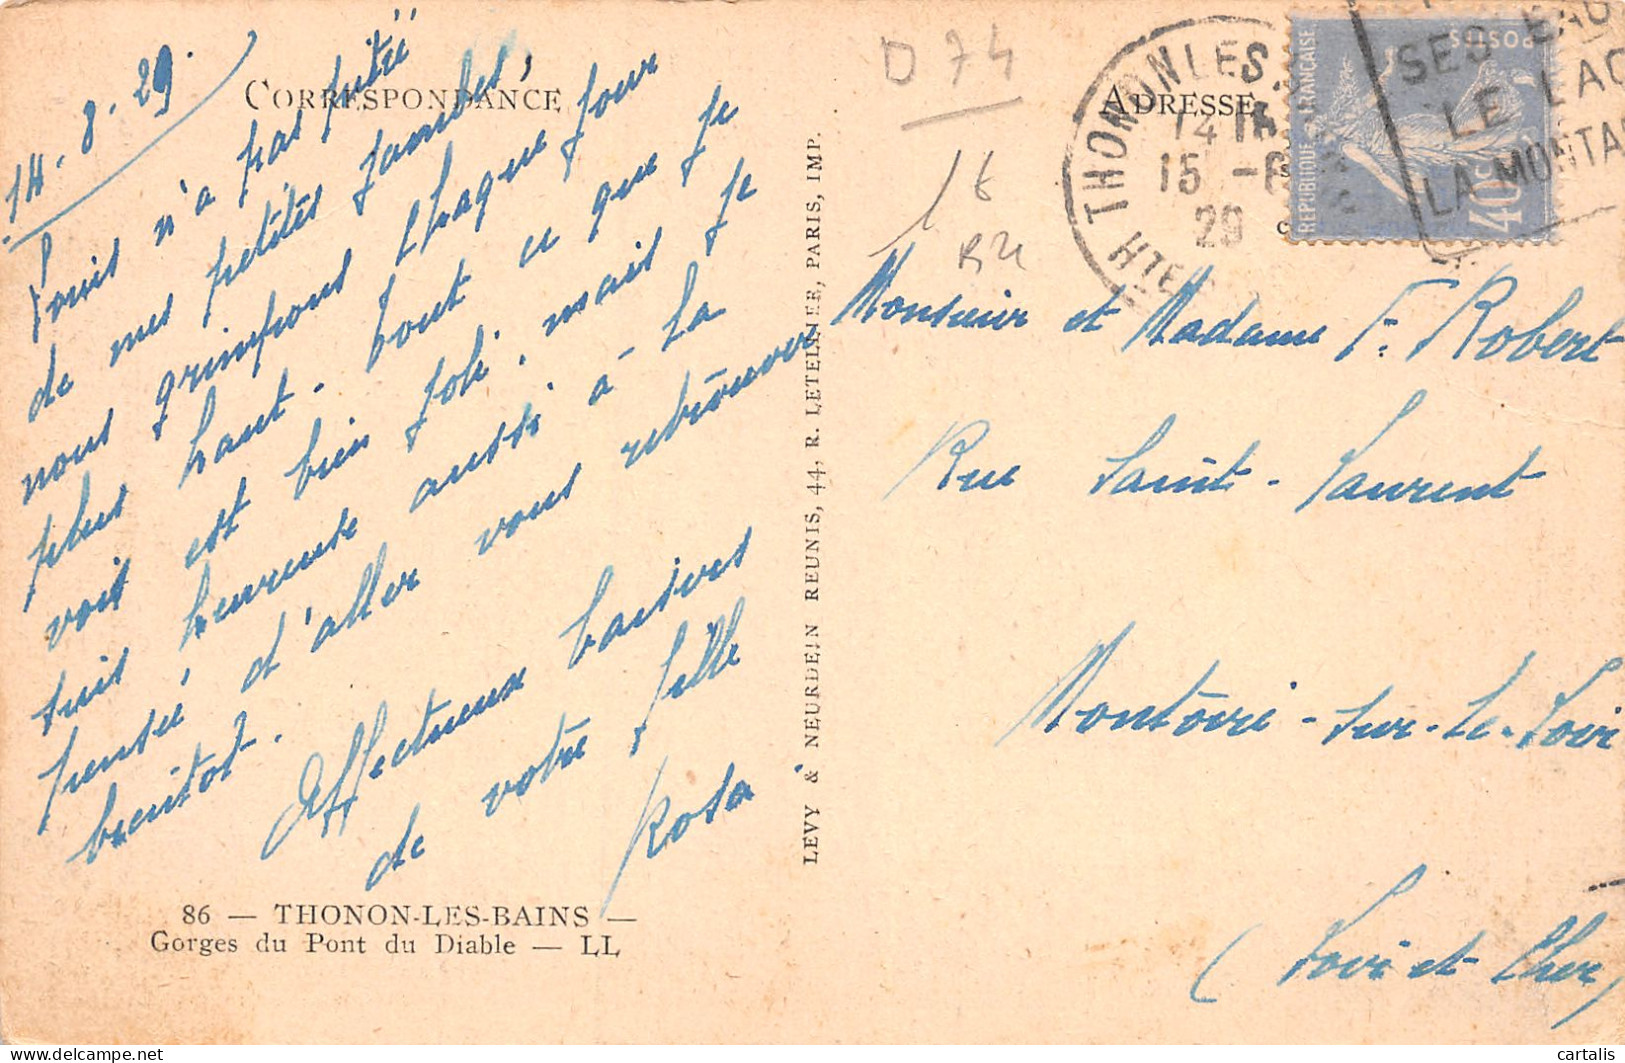 14.8.29.
CORRESPONDANCE
Paris n'a pas pitié
de mes petites jambes,
nous grimpons chaque jour
plus haut. Tout ce que je
vois est bien joli, mais je
suis heureuse aussi à la
pensée d'aller vous retrouver
bientôt.
Affectueux baisers
de votre fille
Rosa
86 — THONON-LES-BAINS —
Gorges du Pont du Diable — LL
LEVY & NEURDEIN REUNIS, 44, R. LETELLIER, PARIS, IMP.
D 74
16
ADRESSE
THONON LES
14
15 -8
29
HTE
REPUBLIQUE FRANCAISE
POSTES
40c
SES EAU
LE LAC
LA MONTA
Monsieur et Madame F. Robert
Rue Saint-Laurent
Montoire-sur-le-Loir
(Loir et Cher)
cartalis
delcampe.net